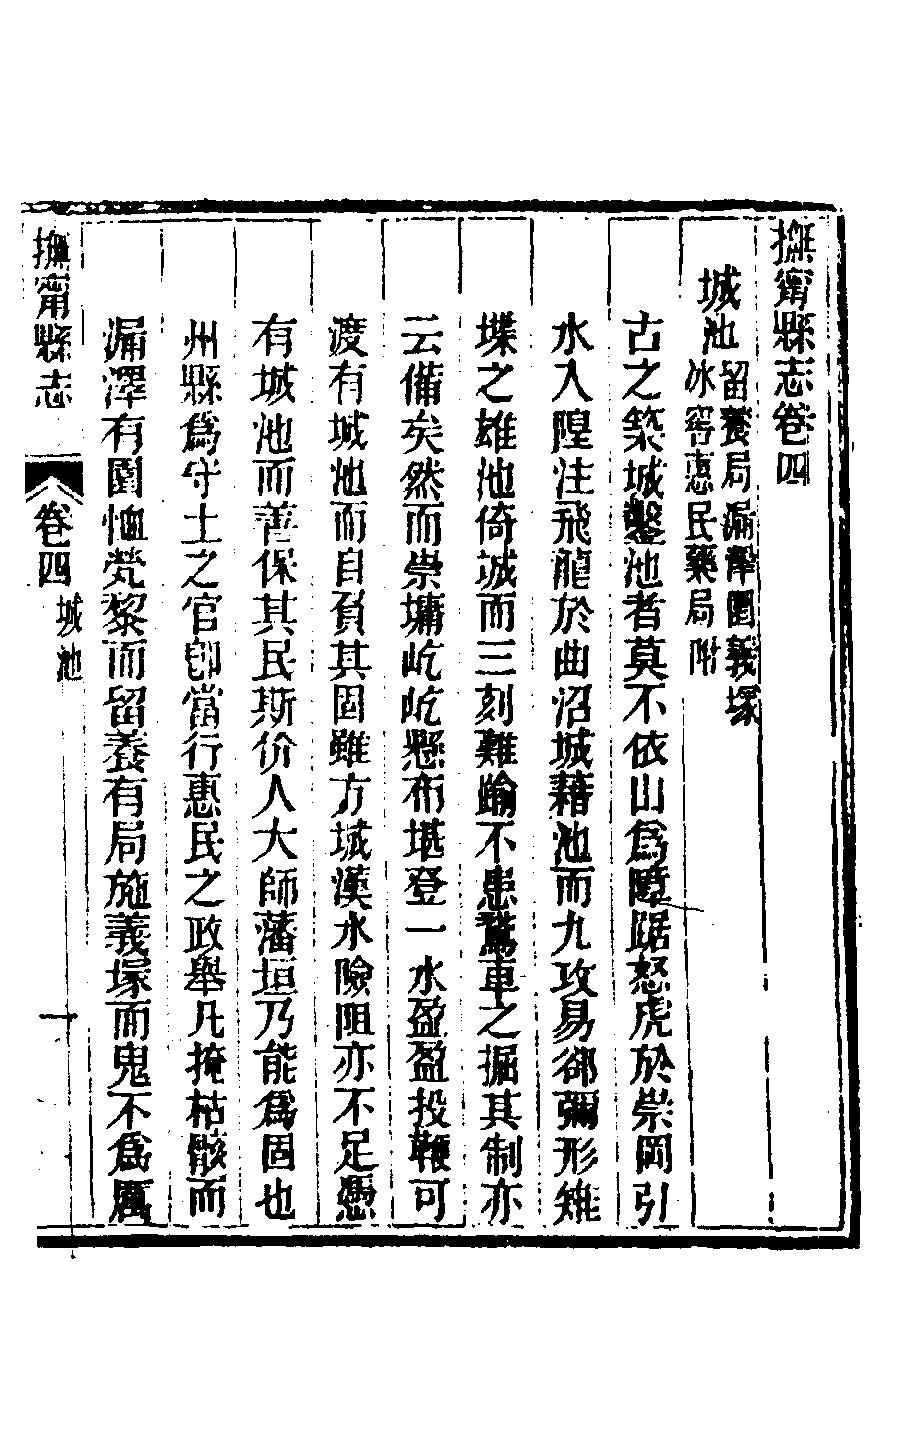 撫甯縣志卷四
城池留養局漏澤園義塚冰窖惠民藥局附
古之築城鑿池者莫不依山爲障踞怒虎於崇岡引
水入隍注飛龍於曲沼城藉池而九攻易卻彌形雉
堞之雄池倚城而三刻難踰不患鶩車之掘其制亦
云備矣然而崇墉屹屹懸布堪登一水盈盈投鞭可
渡有城池而自負其固雖方城漢水險阻亦不足憑
有城池而善保其民斯价人大師藩垣乃能爲固也
州縣爲守土之官卽當行惠民之政舉凡掩枯骸而
漏澤有園恤煢黎而留養有局施義塚而鬼不爲厲
撫甯縣志
卷四
城池
一